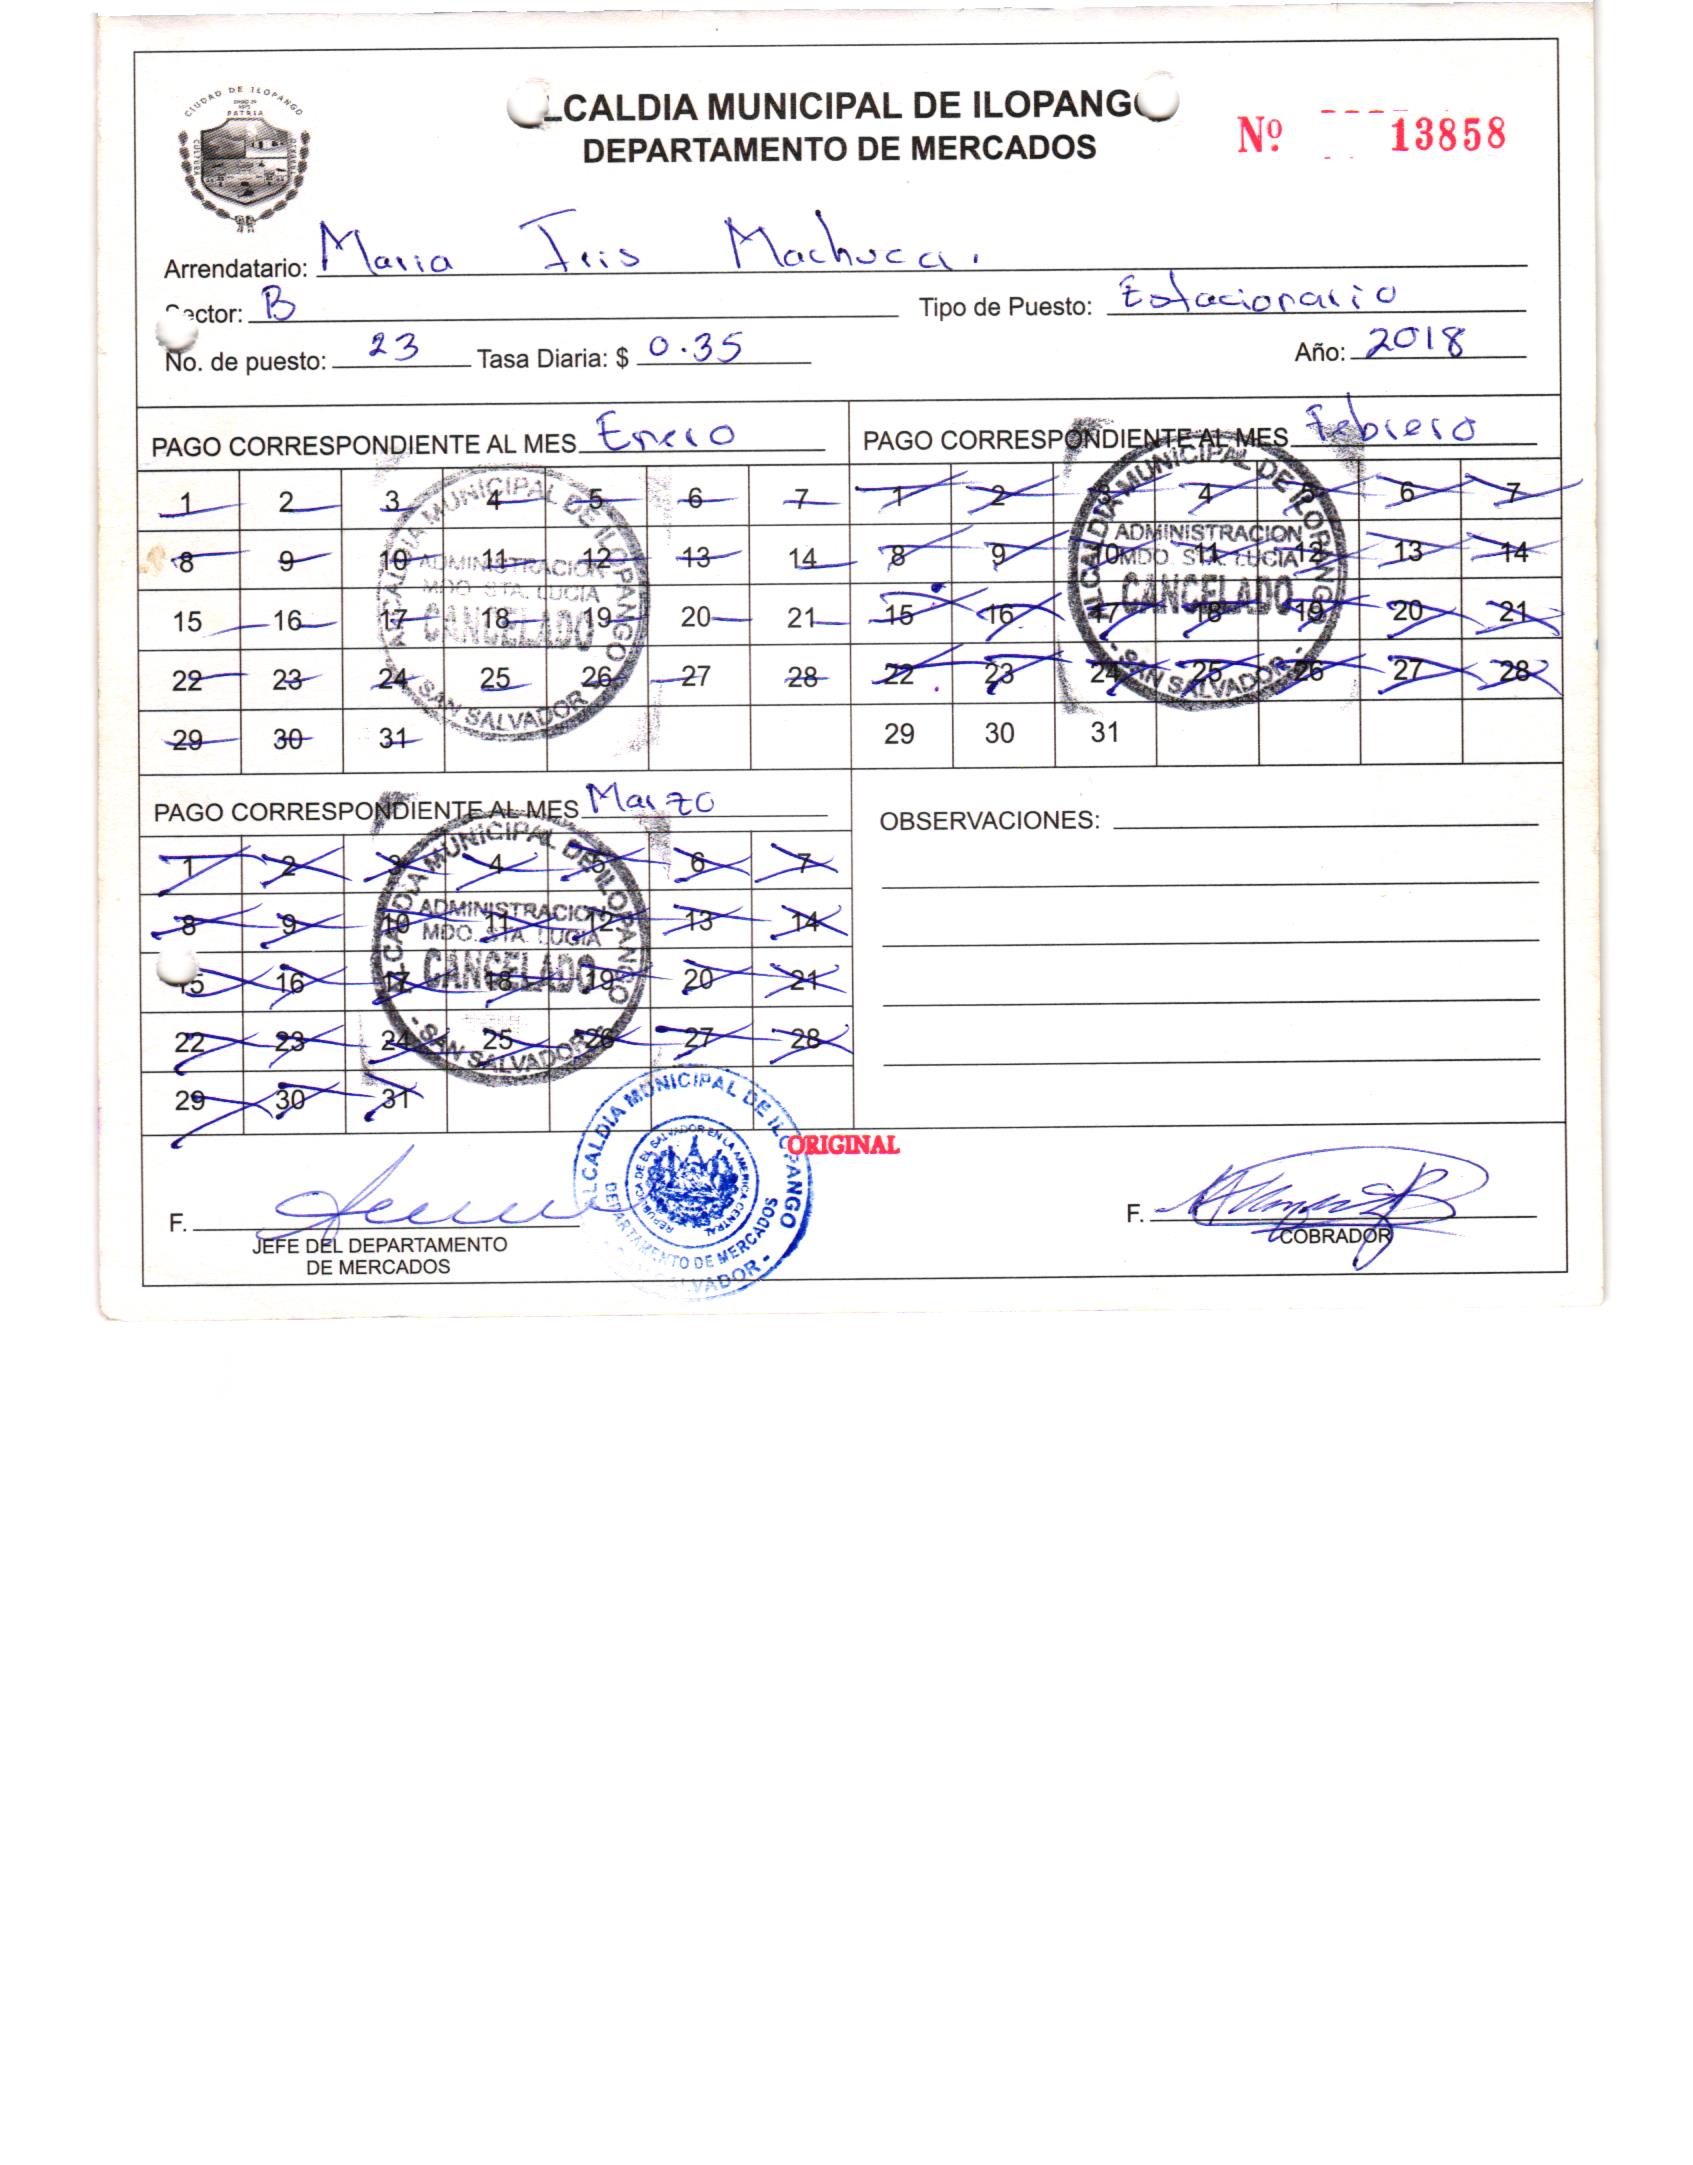 CIUDAD DE ILOPANGO
PATRIA
CULTURA
LCALDIA MUNICIPAL DE ILOPANGO
DEPARTAMENTO DE MERCADOS
Nº 13858
Arrendatario: Maria Iris Machuca.
Sector: B Tipo de Puesto: Estacionario
No. de puesto: 23 Tasa Diaria: $ 0.35 Año: 2018
PAGO CORRESPONDIENTE AL MES Enero
1 2 3 4 5 6 7
8 9 10 11 12 13 14
15 16 17 18 19 20 21
22 23 24 25 26 27 28
29 30 31
ALCALDIA MUNICIPAL DE ILOPANGO
ADMINISTRACION
MDO. STA. LUCIA
CANCELADO
SAN SALVADOR
PAGO CORRESPONDIENTE AL MES Febrero
1 2 3 4 5 6 7
8 9 10 11 12 13 14
15 16 17 18 19 20 21
22 23 24 25 26 27 28
29 30 31
ALCALDIA MUNICIPAL DE ILOPANGO
ADMINISTRACION
MDO. STA. LUCIA
CANCELADO
- SAN SALVADOR -
PAGO CORRESPONDIENTE AL MES Marzo
1 2 3 4 5 6 7
8 9 10 11 12 13 14
15 16 17 18 19 20 21
22 23 24 25 26 27 28
29 30 31
ALCALDIA MUNICIPAL DE ILOPANGO
ADMINISTRACION
MDO. STA. LUCIA
CANCELADO
- SAN SALVADOR -
OBSERVACIONES:
ALCALDIA MUNICIPAL DE ILOPANGO
REPUBLICA DE EL SALVADOR EN LA AMERICA CENTRAL
DEPARTAMENTO DE MERCADOS
SALVADOR -
ORIGINAL
F.
JEFE DEL DEPARTAMENTO
DE MERCADOS
F.
COBRADOR